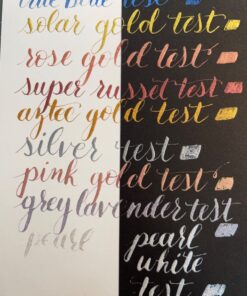 true blue test
solar gold test
rose gold test
super russet test
aztec gold test
silver test
pink gold test
grey lavender test
pearl pearl
white
test